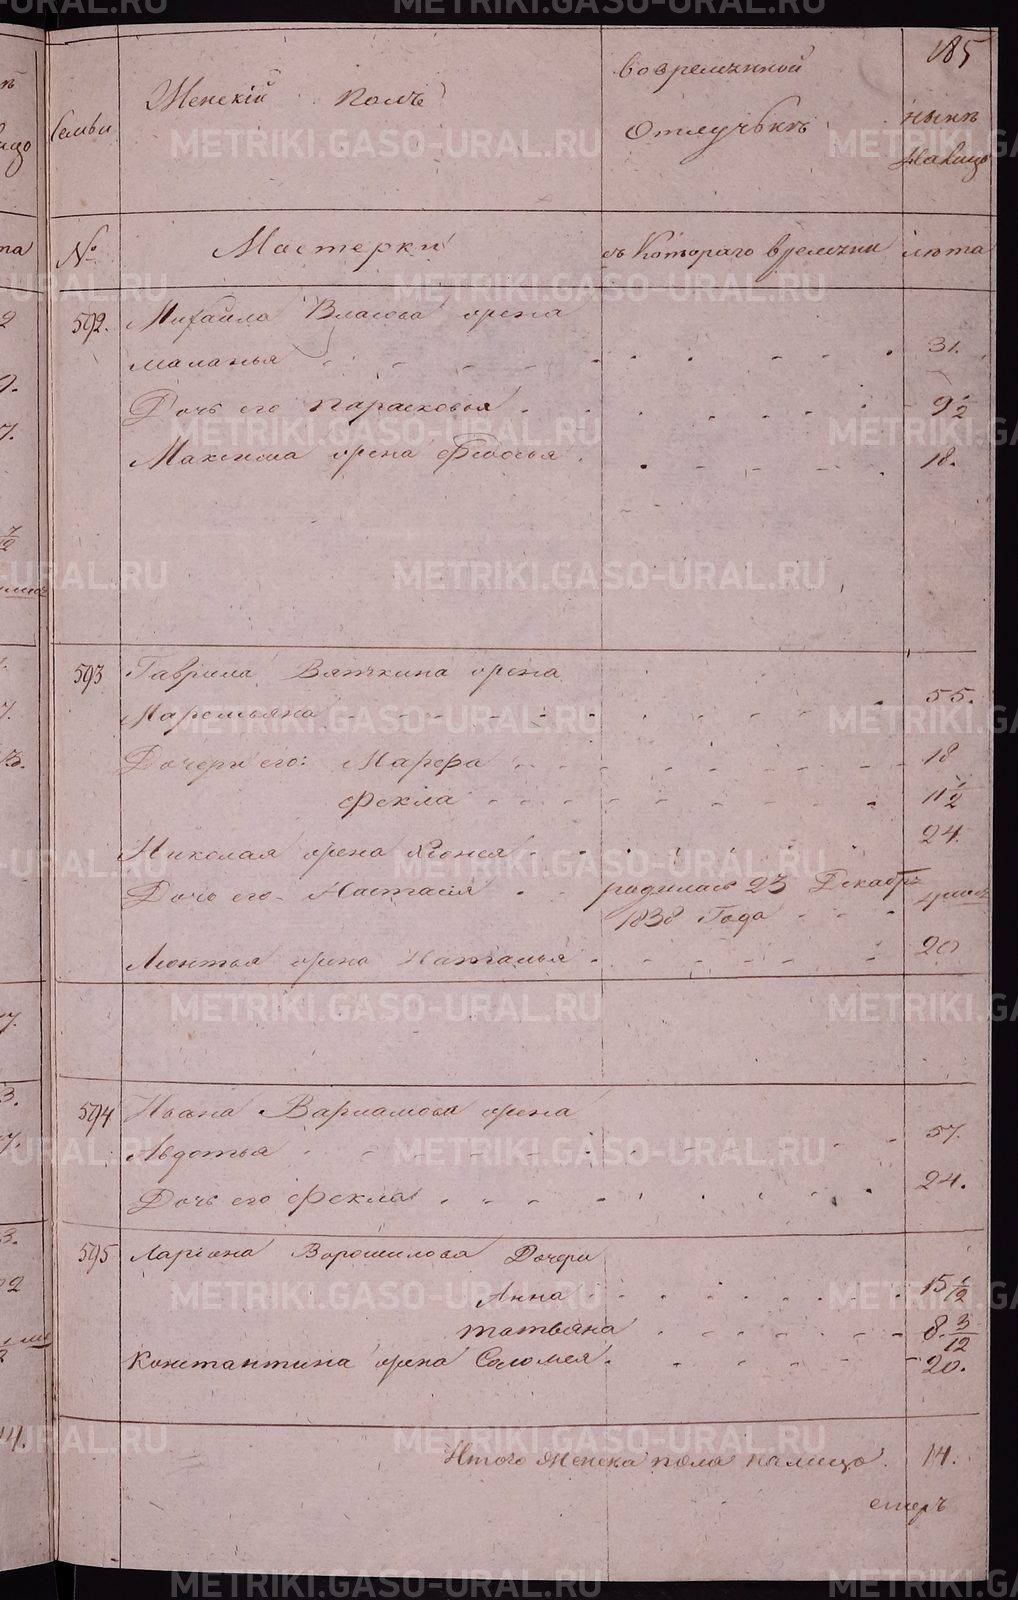 185
Женскій полъ
вовременной
Семьи
Отлучькѣ
нынѣ
налицо
№
Мастерки
съ Котораго времени
лѣта
592.
Михайла Власова жена
маланья 31.
Дочь его парасковья 9 1/2
Максима жена Федосья 18.
593
Гаврила Вяткина жена
Маремьяна 55.
Дочери его: Марфа 18
Фекла 11 1/2
Николая жена 24.
Дочь его Настасія родилась 23 Декабр
1838 Года
Леонтья жена Наталья 20
594
Ивана Варламова жена
Авдотья 57.
Дочь его Фекла 24.
595
Ларіона Ворошилова Дочери
Анна 15 1/12
татьяна 8. 3/12
Константина жена Соломея. 20.
Итого женска пола налицо 14.
METRIKI.GASO-URAL.RU